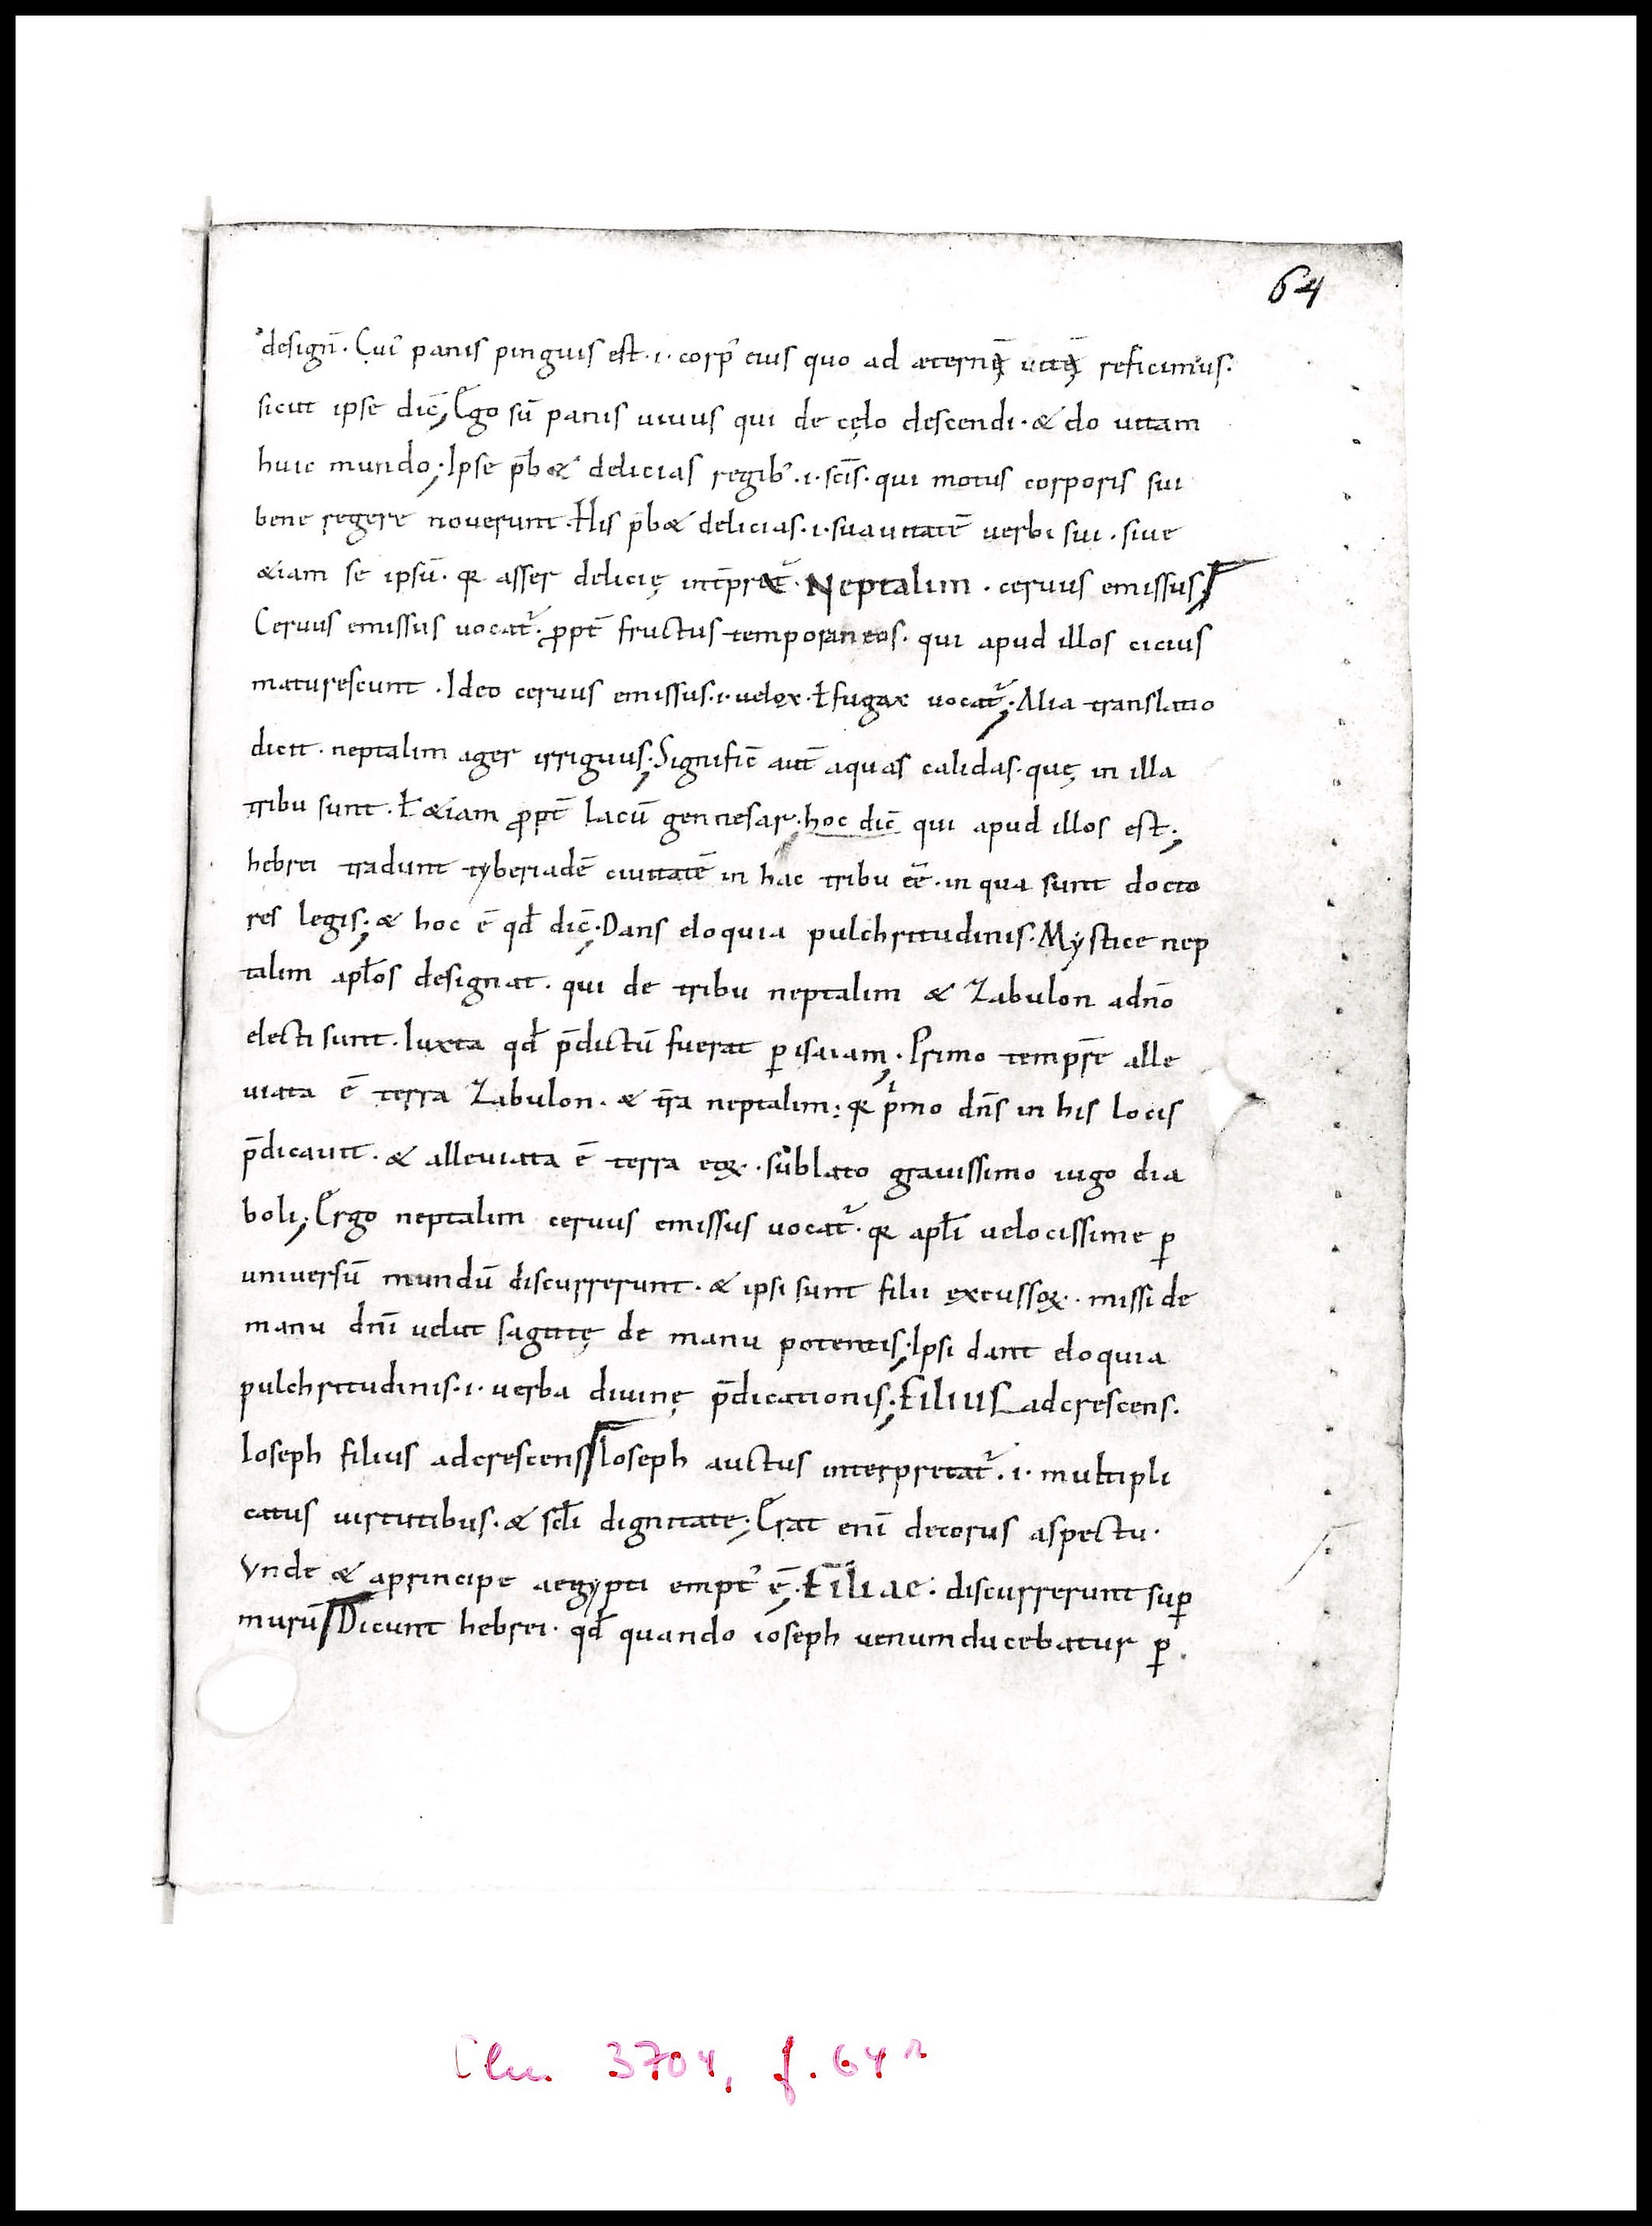 64
design̄. Cui᾽ panis pinguis est .i. corp᾽ eius quo ad aeternę̄ uitę̄ reficimus.
sicut ipse dic̄; Ego sū panis uiuus qui de cęlo descendi. & do uitam
huic mundo; Ipse p̄b& delicias regib᾽ .i. sc̄is. qui motus corporis sui
bene regere noverunt. His p̄b& delicias .i. suauitatē verbi sui. siue
&iam se ipsū. qr asser delicię int̄pr&at᾽. Neptalim. ceruus emissus;
Ceruus emissus vocat᾽. ꝓpt̄ fructus temporaneos. qui apud illos cicius
maturescunt. Ideo ceruus emissus .i. uelox. ł fugax vocat᾽; Alia translatio
dicit. neptalim ager irriguus; Signific̄ aut̄ aquas calidas. quę in illa
tribu sunt. ł &iam ꝓpt̄ lacū gennesar. hoc dic̄ qui apud illos est;
hebrei tradunt tyberiadē ciuitatē in hac tribu eē. in qua sunt docto
res legis; & hoc ē qđ dic̄; Dans eloquia pulchritudinis. Mystice nep
talim apłos designat. qui de tribu neptalim & Zabulon adn̄o
electi sunt. Iuxta qđ p̄dictū fuerat ꝑ isaiam; Primo tempr̄e alle
uiata ē terra Zabulon. & tr̄a neptalim: qr pⁱmo dn̄s in his locis
p̄dicauit. & alleuiata ē terra eoꝝ. sublato grauissimo iugo dia
boli; Ergo neptalim ceruus emissus vocat᾽. qr apłi velocissime ꝑ
uniuersū mundū discurrerunt. & ipsi sunt filii excussoꝝ. missi de
manu dn̄i velut sagittę de manu potentis; Ipsi dant eloquia
pulchritudinis .i. verba diuinę p̄dicationis; FILIUS adcrescens.
Ioseph filius adcrescens; Ioseph auctus interpretat᾽ .i. multipli
catus uirtutibus. & scłi dignitate; Erat eni᾽ decorus aspectu.
Vnde & aprincipe aegypti empt᾽ ē; Filiae: discurrerunt suꝑ
murū; Dicunt hebrei. qđ quando ioseph uenumducebatur ꝑ.
Clm. 3704, f. 64r